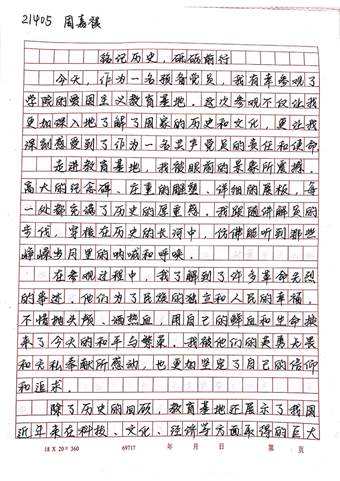 21405 周嘉祺
铭记历史，砥砺前行
今天，作为一名预备党员，我有幸参观了
学院的爱国主义教育基地。这次参观不仅让我
更加深入地了解了国家的历史和文化，更让我
深刻感受到了作为一名共产党员的责任和使命
走进教育基地，我被眼前的景象所震撼。
高大的纪念碑、庄重的雕塑、详细的展板，每
一处都充满了历史的厚重感。我跟随讲解员的
步伐，穿梭在历史的长河中，仿佛能听到那些
峥嵘岁月里的呐喊和呼唤。
在参观过程中，我了解到了许多革命先烈
的事迹。他们为了民族的独立和人民的幸福，
不惜抛头颅、洒热血，用自己的鲜血和生命换
来了今天的和平与繁荣。我被他们的英勇无畏
和无私奉献所感动，也更加坚定了自己的信仰
和追求。
除了历史的回顾，教育基地还展示了我国
近年来在科技、文化、经济等方面取得的巨大
18×20=360 69717 年 月 日 第 页